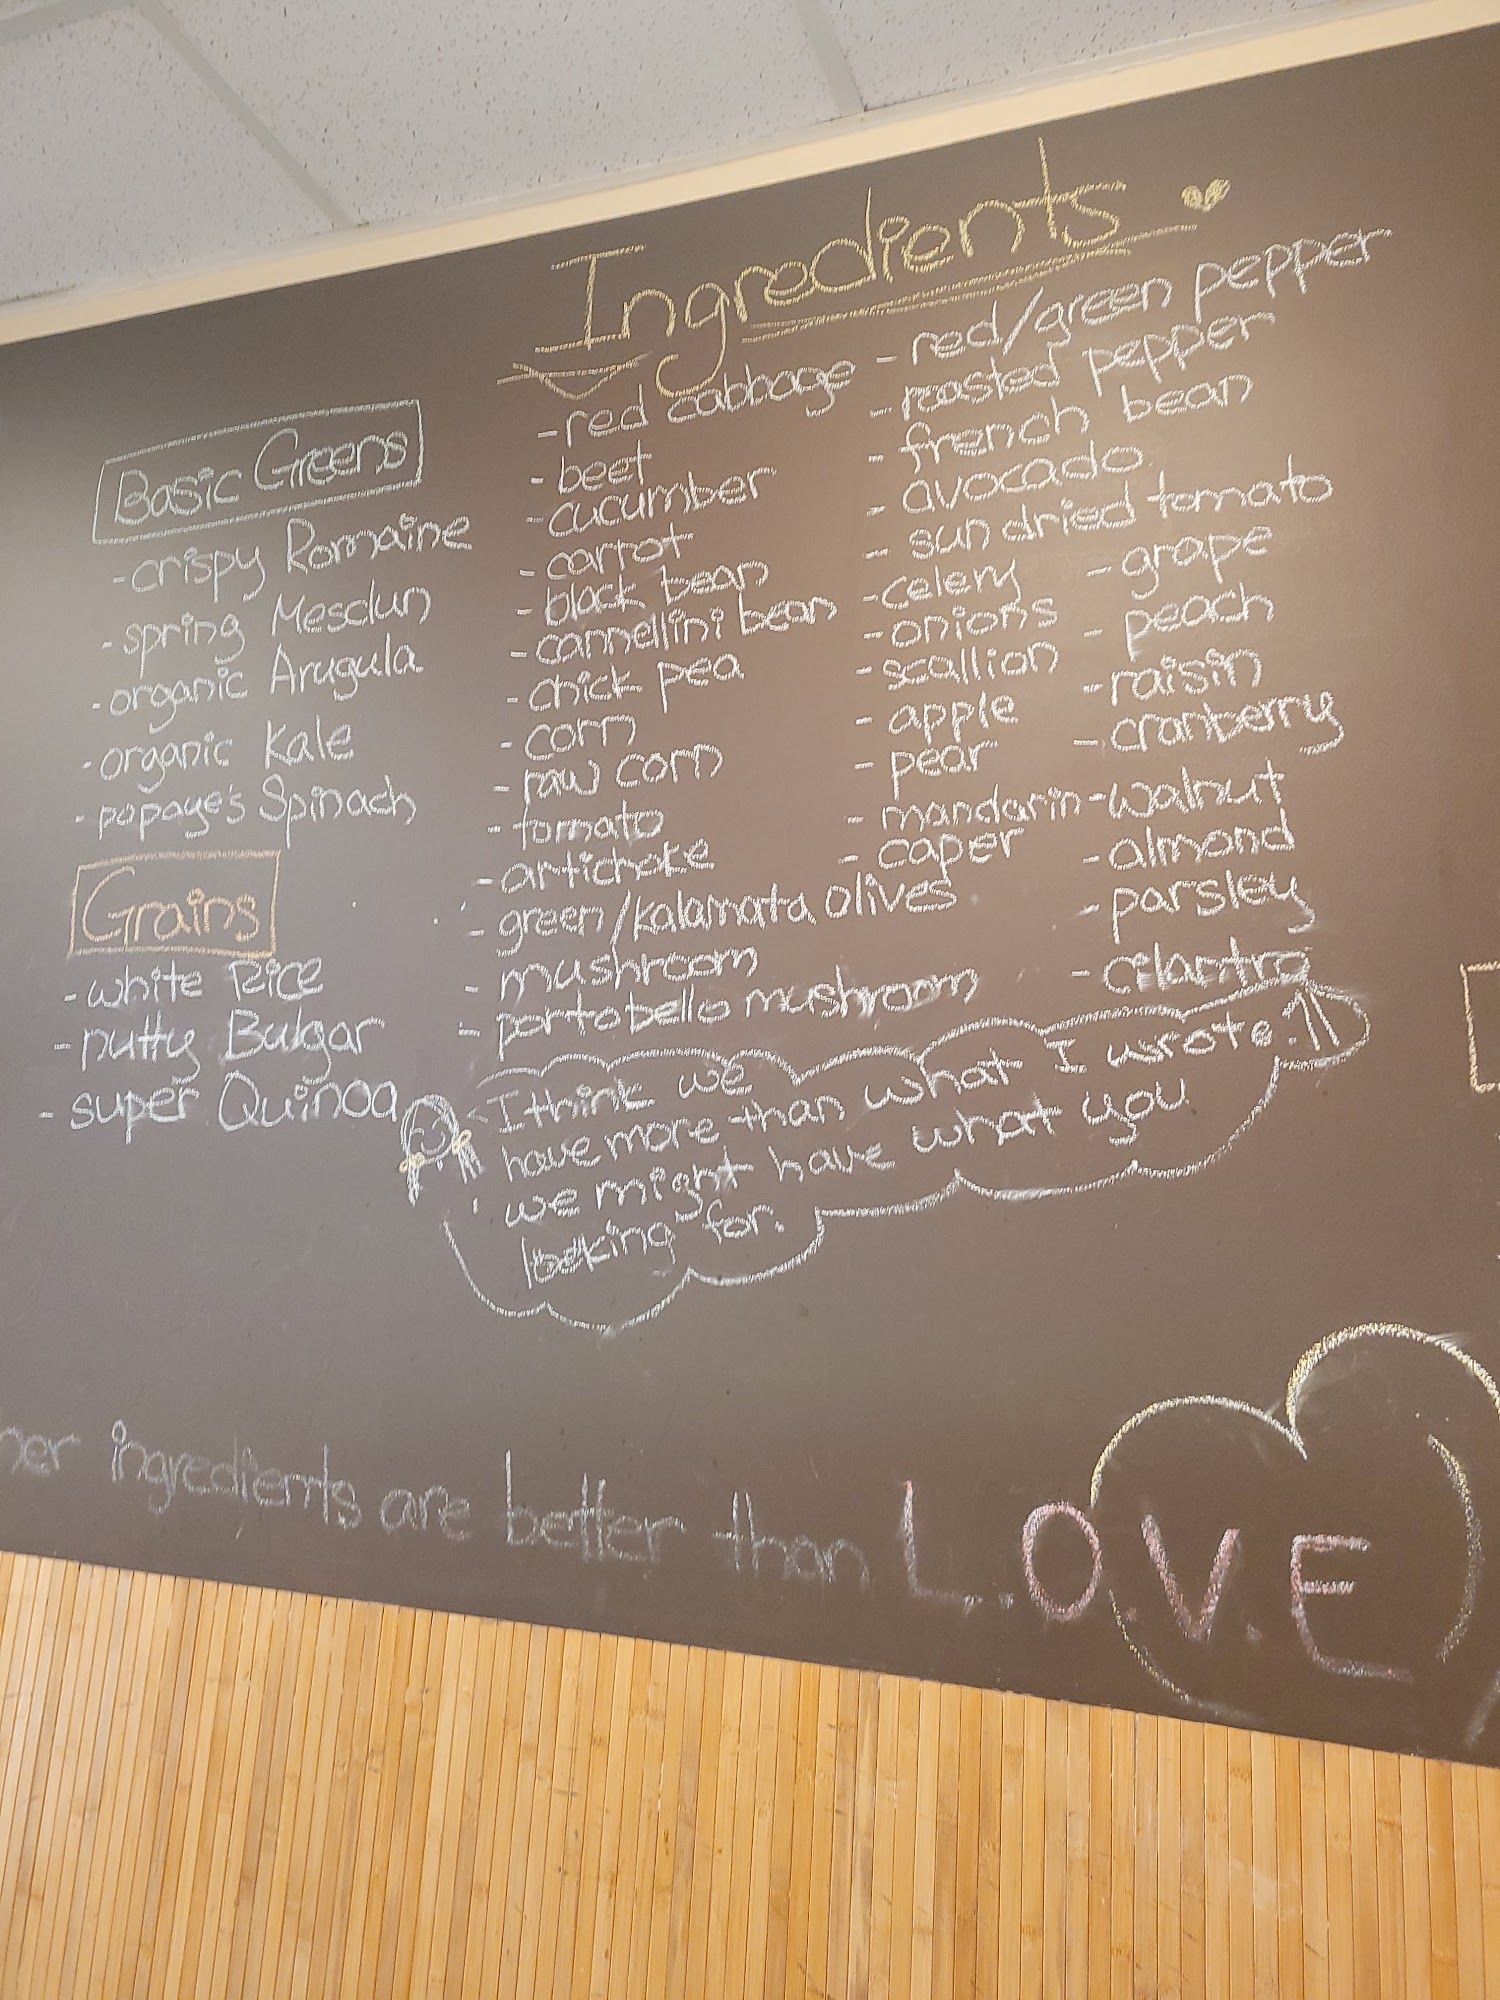 Ingredients
Basic Greens
-crispy Romaine
-spring Mesclun
-organic Arugula
-organic Kale
-popaye's Spinach
Grains
-white Rice
-nutty Bulgar
-super Quinoa
-red cabbage
-beet
-cucumber
-carrot
-black bean
-cannellini bean
-chick pea
-corn
-raw corn
-tomato
-artichoke
-green/kalamata olives
-mushroom
-portobello mushroom
-red/green pepper
-roasted pepper
-french bean
-avocado
-sun dried tomato
-celery
-onions
-scallion
-apple
-pear
-mandarin
-caper
-grape
-peach
-raisin
-cranberry
-walnut
-almond
-parsley
-cilantro
I think we
have more than what I wrote.!!
we might have what you
looking for.
ingredients are better than L.O.V.E